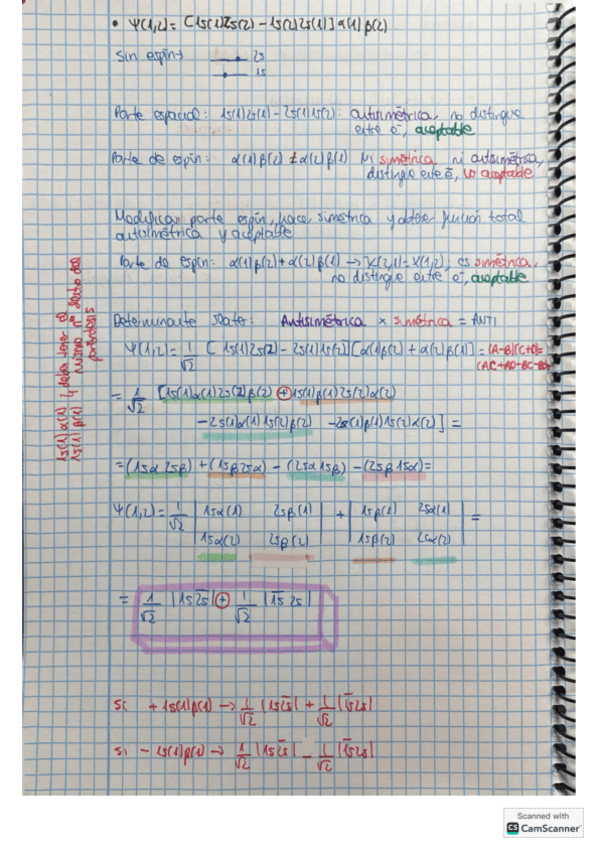 • Ψ(1,2) = [1s(1)2s(2) - 1s(2)2s(1)] α(1) β(2)
Sin espín → 2s
1s
Parte espacial: 1s(1)2s(1) - 2s(1)1s(2): antisimétrica, no distingue
entre e⁻, aceptable
Parte de espín: α(1)β(2) ≠ α(2)β(1) Ni simétrica ni antisimétrica,
distingue entre e⁻, no aceptable
Modificar parte espín, hace simétrica y obtener función total
antisimétrica y aceptable
Parte de espín: α(1)β(2) + α(2)β(1) → X(2,1) = X(1,2); es simétrica,
no distingue entre e⁻, aceptable
Determinante Slater: Antisimétrica × simétrica = ANTI
Ψ(1,2) = 1/√2 [1s(1)2s(2) - 2s(1)1s(2)][α(1)β(2) + α(2)β(1)] = (A-B)(C+D) =
(AC+AD-BC-BD)
= 1/√2 [1s(1)α(1)2s(2)β(2) ⊕ 1s(1)β(1)2s(2)α(2)
- 2s(1)α(1)1s(2)β(2) - 2s(1)β(1)1s(2)α(2)] =
1s(1)α(1) } deben tener el
1s(1)β(1) } mismo nº dentro del
paréntesis
= (1sα 2sβ) + (1sβ 2sα) - (2sα 1sβ) - (2sβ 1sα) =
Ψ(1,2) = 1/√2 | 1sα(1) 2sβ(1) | + | 1sβ(1) 2sα(1) | =
| 1sα(2) 2sβ(2) | | 1sβ(2) 2sα(2) |
= 1/√2 |1s 2s̅| ⊕ 1/√2 |1s̅ 2s|
Si + 1s(1)β(1) → 1/√2 |1s 2s̅| + 1/√2 |1s̅ 2s|
Si - 1s(1)β(1) → 1/√2 |1s 2s̅| - 1/√2 |1s̅ 2s|
Scanned with
CS CamScanner